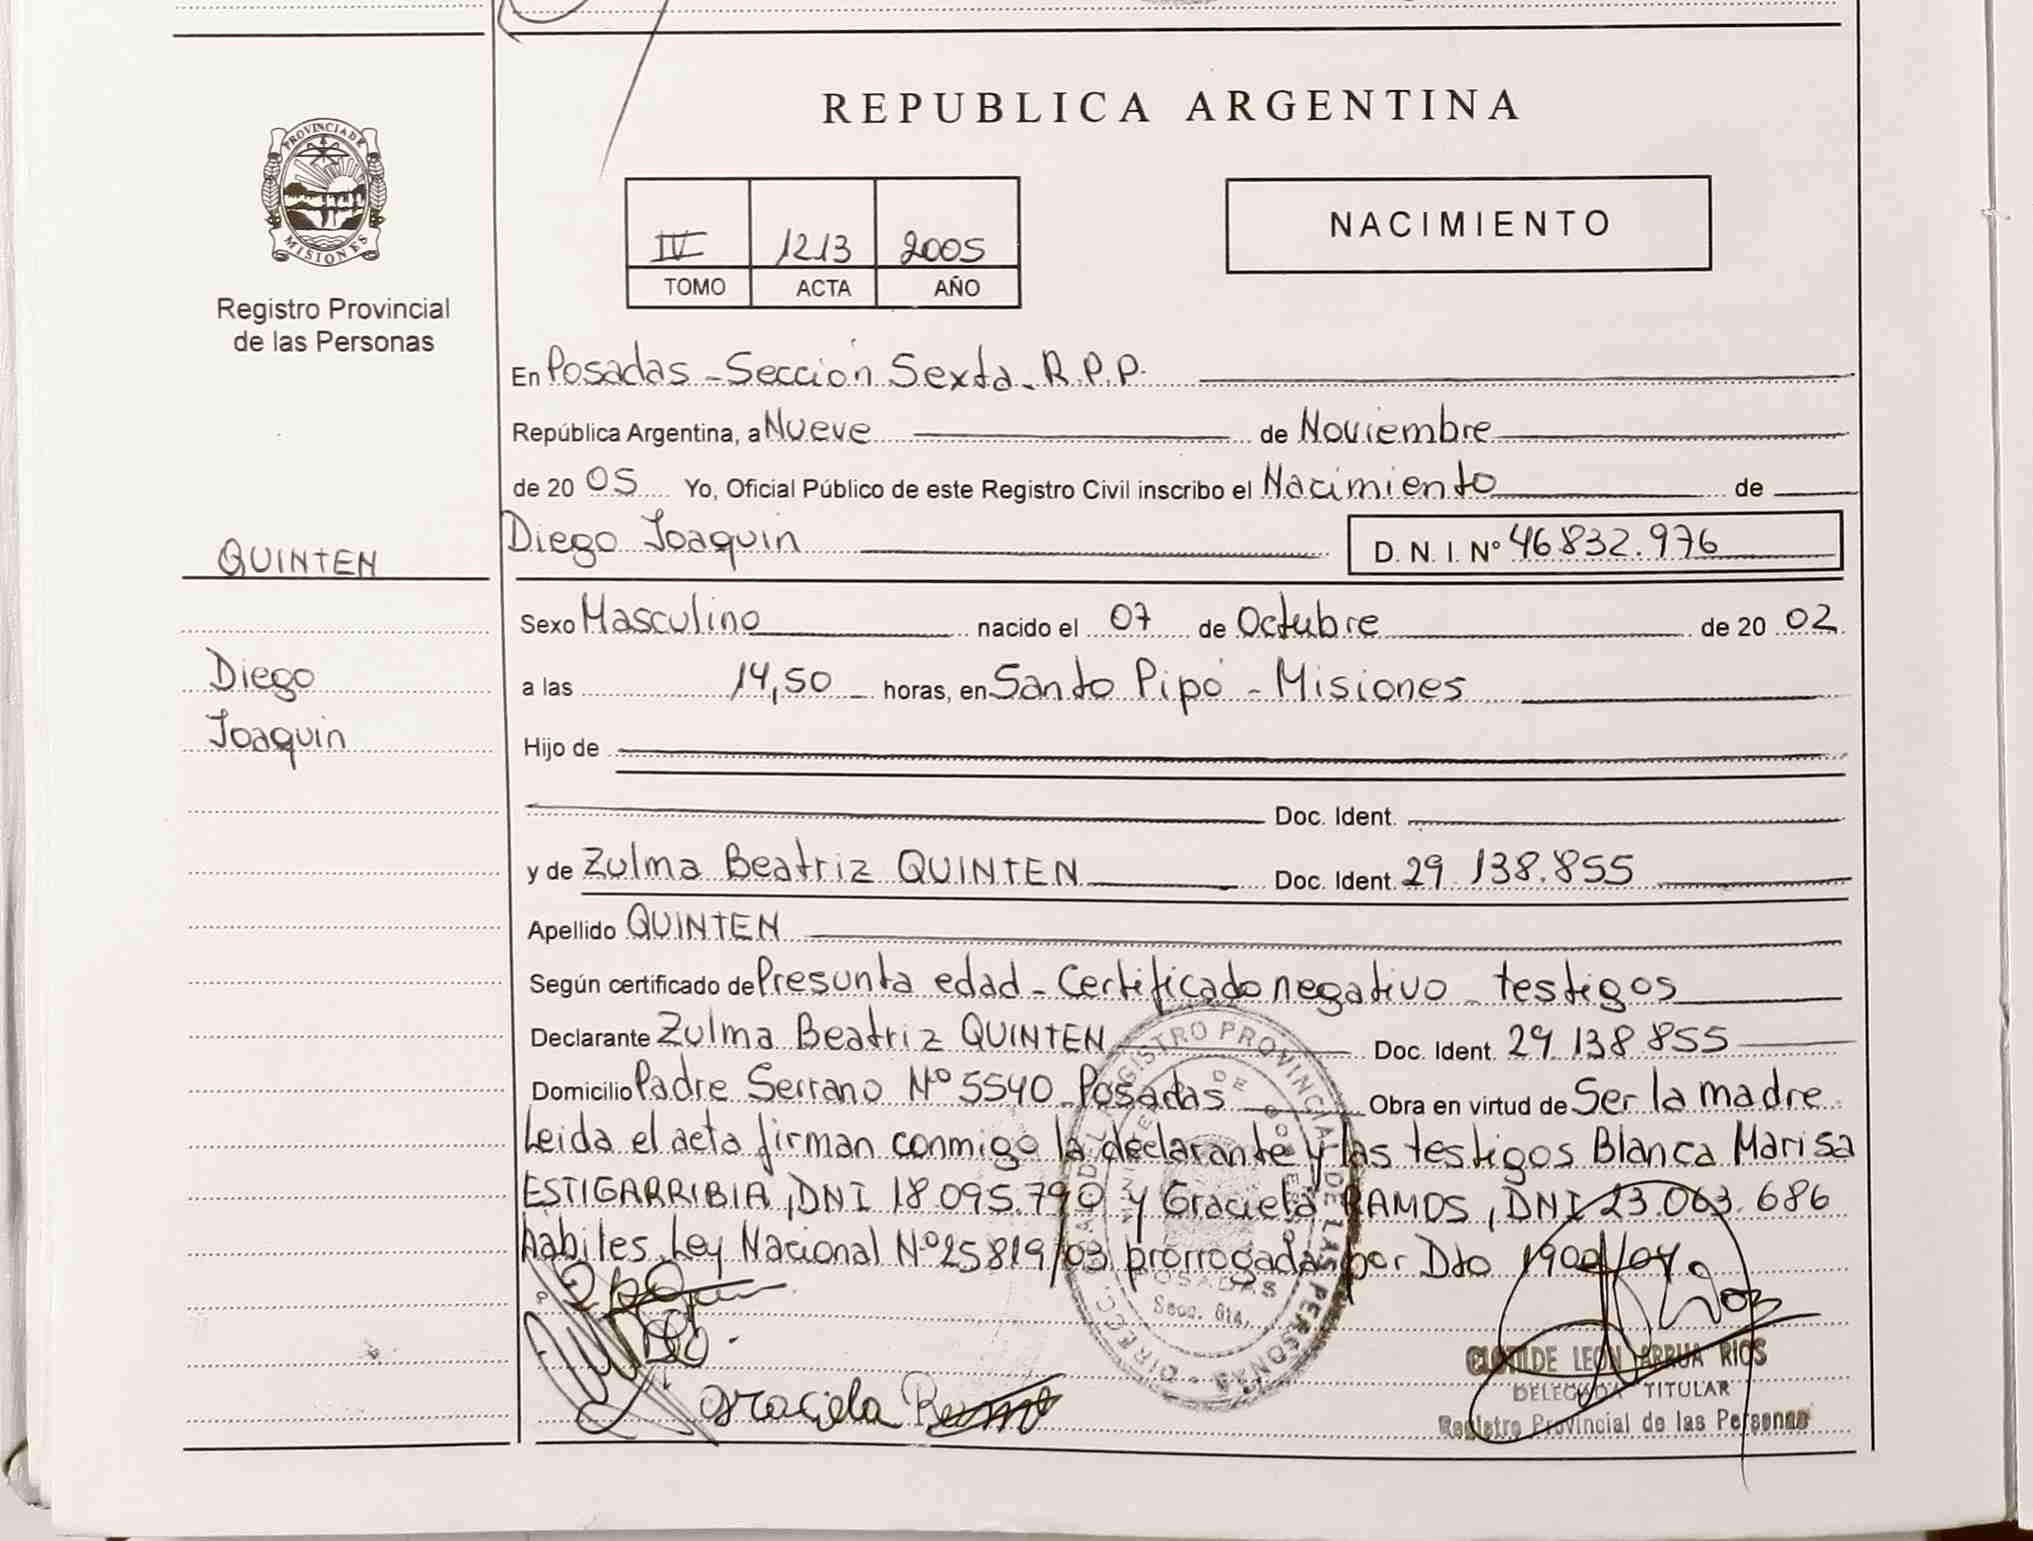 REPUBLICA ARGENTINA
PROVINCIA DE
MISIONES
Registro Provincial
de las Personas
IV 1213 2005
TOMO ACTA AÑO
NACIMIENTO
En Posadas - Sección Sexta - R.P.P.
República Argentina, a Nueve de Noviembre
de 20 05 Yo, Oficial Público de este Registro Civil inscribo el Nacimiento de
QUINTEN
Diego Joaquin D. N. I. Nº 46832.976
Sexo Masculino nacido el 07 de Octubre de 20 02
Diego
a las 14,50 horas, en Santo Pipó - Misiones
Joaquin
Hijo de
Doc. Ident.
y de Zulma Beatriz QUINTEN Doc. Ident. 29.138.855
Apellido QUINTEN
Según certificado de Presunta edad - Certificado negativo - testigos
Declarante Zulma Beatriz QUINTEN Doc. Ident. 29.138.855
Domicilio Padre Serrano Nº 5540 - Posadas Obra en virtud de Ser la madre
Leida el acta firman conmigo la declarante y las testigos Blanca Marisa
ESTIGARRIBIA, DNI 18.095.790 y Graciela RAMOS, DNI 23.063.686
habiles. Ley Nacional Nº 25819/03 prorrogada por Dto
REGISTRO PROVINCIAL DE LAS PERSONAS
POSADAS
Secc. 6ta.
Graciela
CLOTILDE LEON ARRUA RIOS
DELEGADA TITULAR
Registro Provincial de las Personas